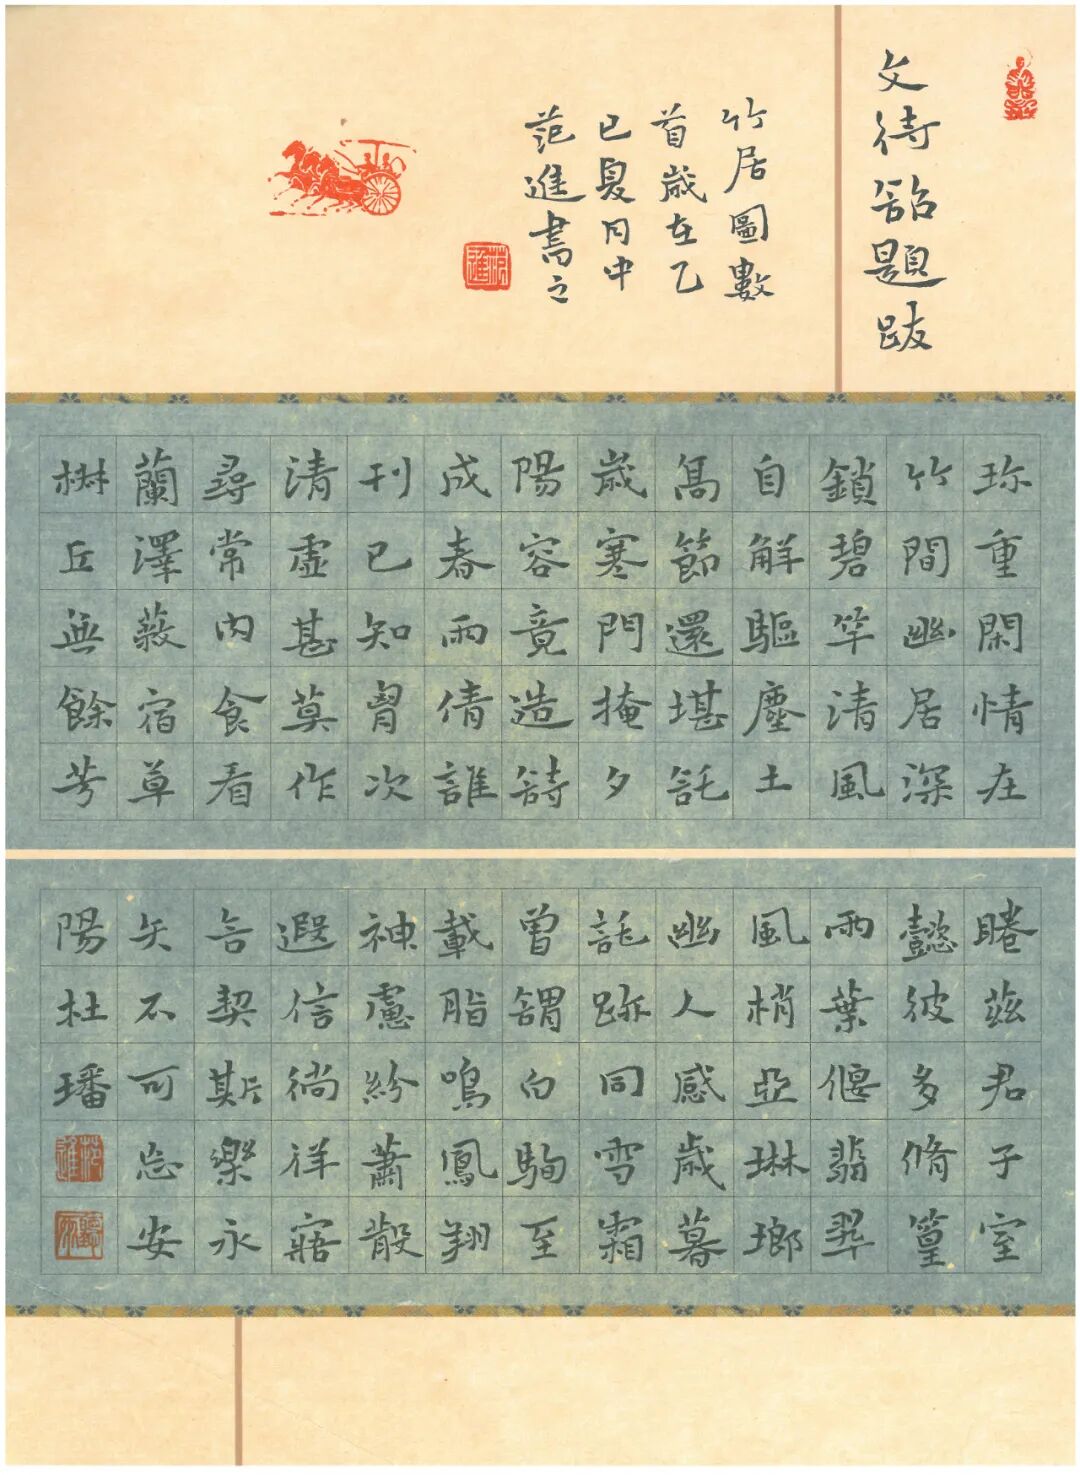 文待詔題跋
竹居圖數
首歲在乙
巳夏月中
范進書之
范進
珎重閑情在
竹間幽居深
鎖碧竿清風
自解驅塵土
高節還堪託
歲寒門掩夕
陽容竟造詩
成春雨倩誰
刊已知胷次
清虛甚莫作
尋常肉食看
蘭澤蔽宿草
樹丘無餘芳
睠茲君子室
懿彼多脩篁
雨葉偃翡翠
風梢亞琳瑯
幽人感歲暮
託跡同雪霜
曾謂白駒至
載脂鳴鳳翔
神慮紛蕭散
遐信徜徉寤
言契斯樂永
矢不可忘安
陽杜璠
范進